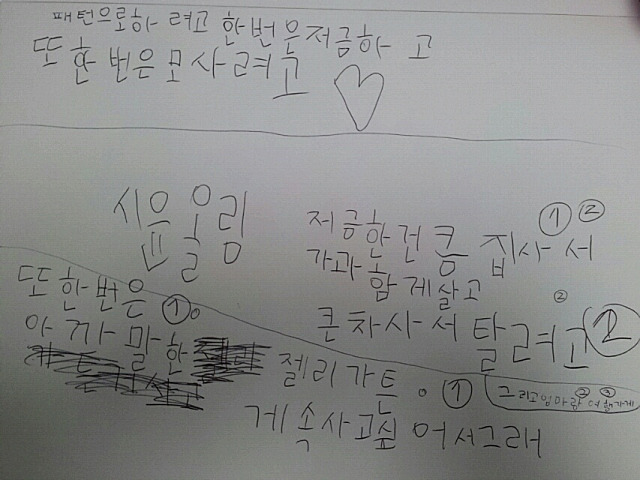 패턴으로하 려고 한번은저금하 고
또한번은모사려고
시은올림
저금한건 큼 집사서 ① ②
가과 함 게살고
큰차사서 탈려고 ② ②
또한번은 ①.
아까말한
젤리가튼. ①
게속사고싶어서그래
그리고엄마랑 여행가게 ② ③